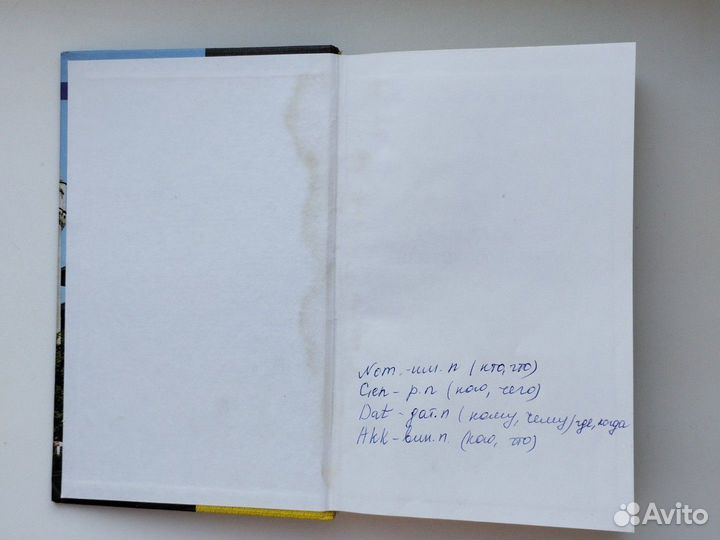 Nom. - им. п (кто, что)
Gen - р. п (кого, чего)
Dat - дат. п (кому, чему) где, когда
Akk - вин. п. (кого, что)
Avito